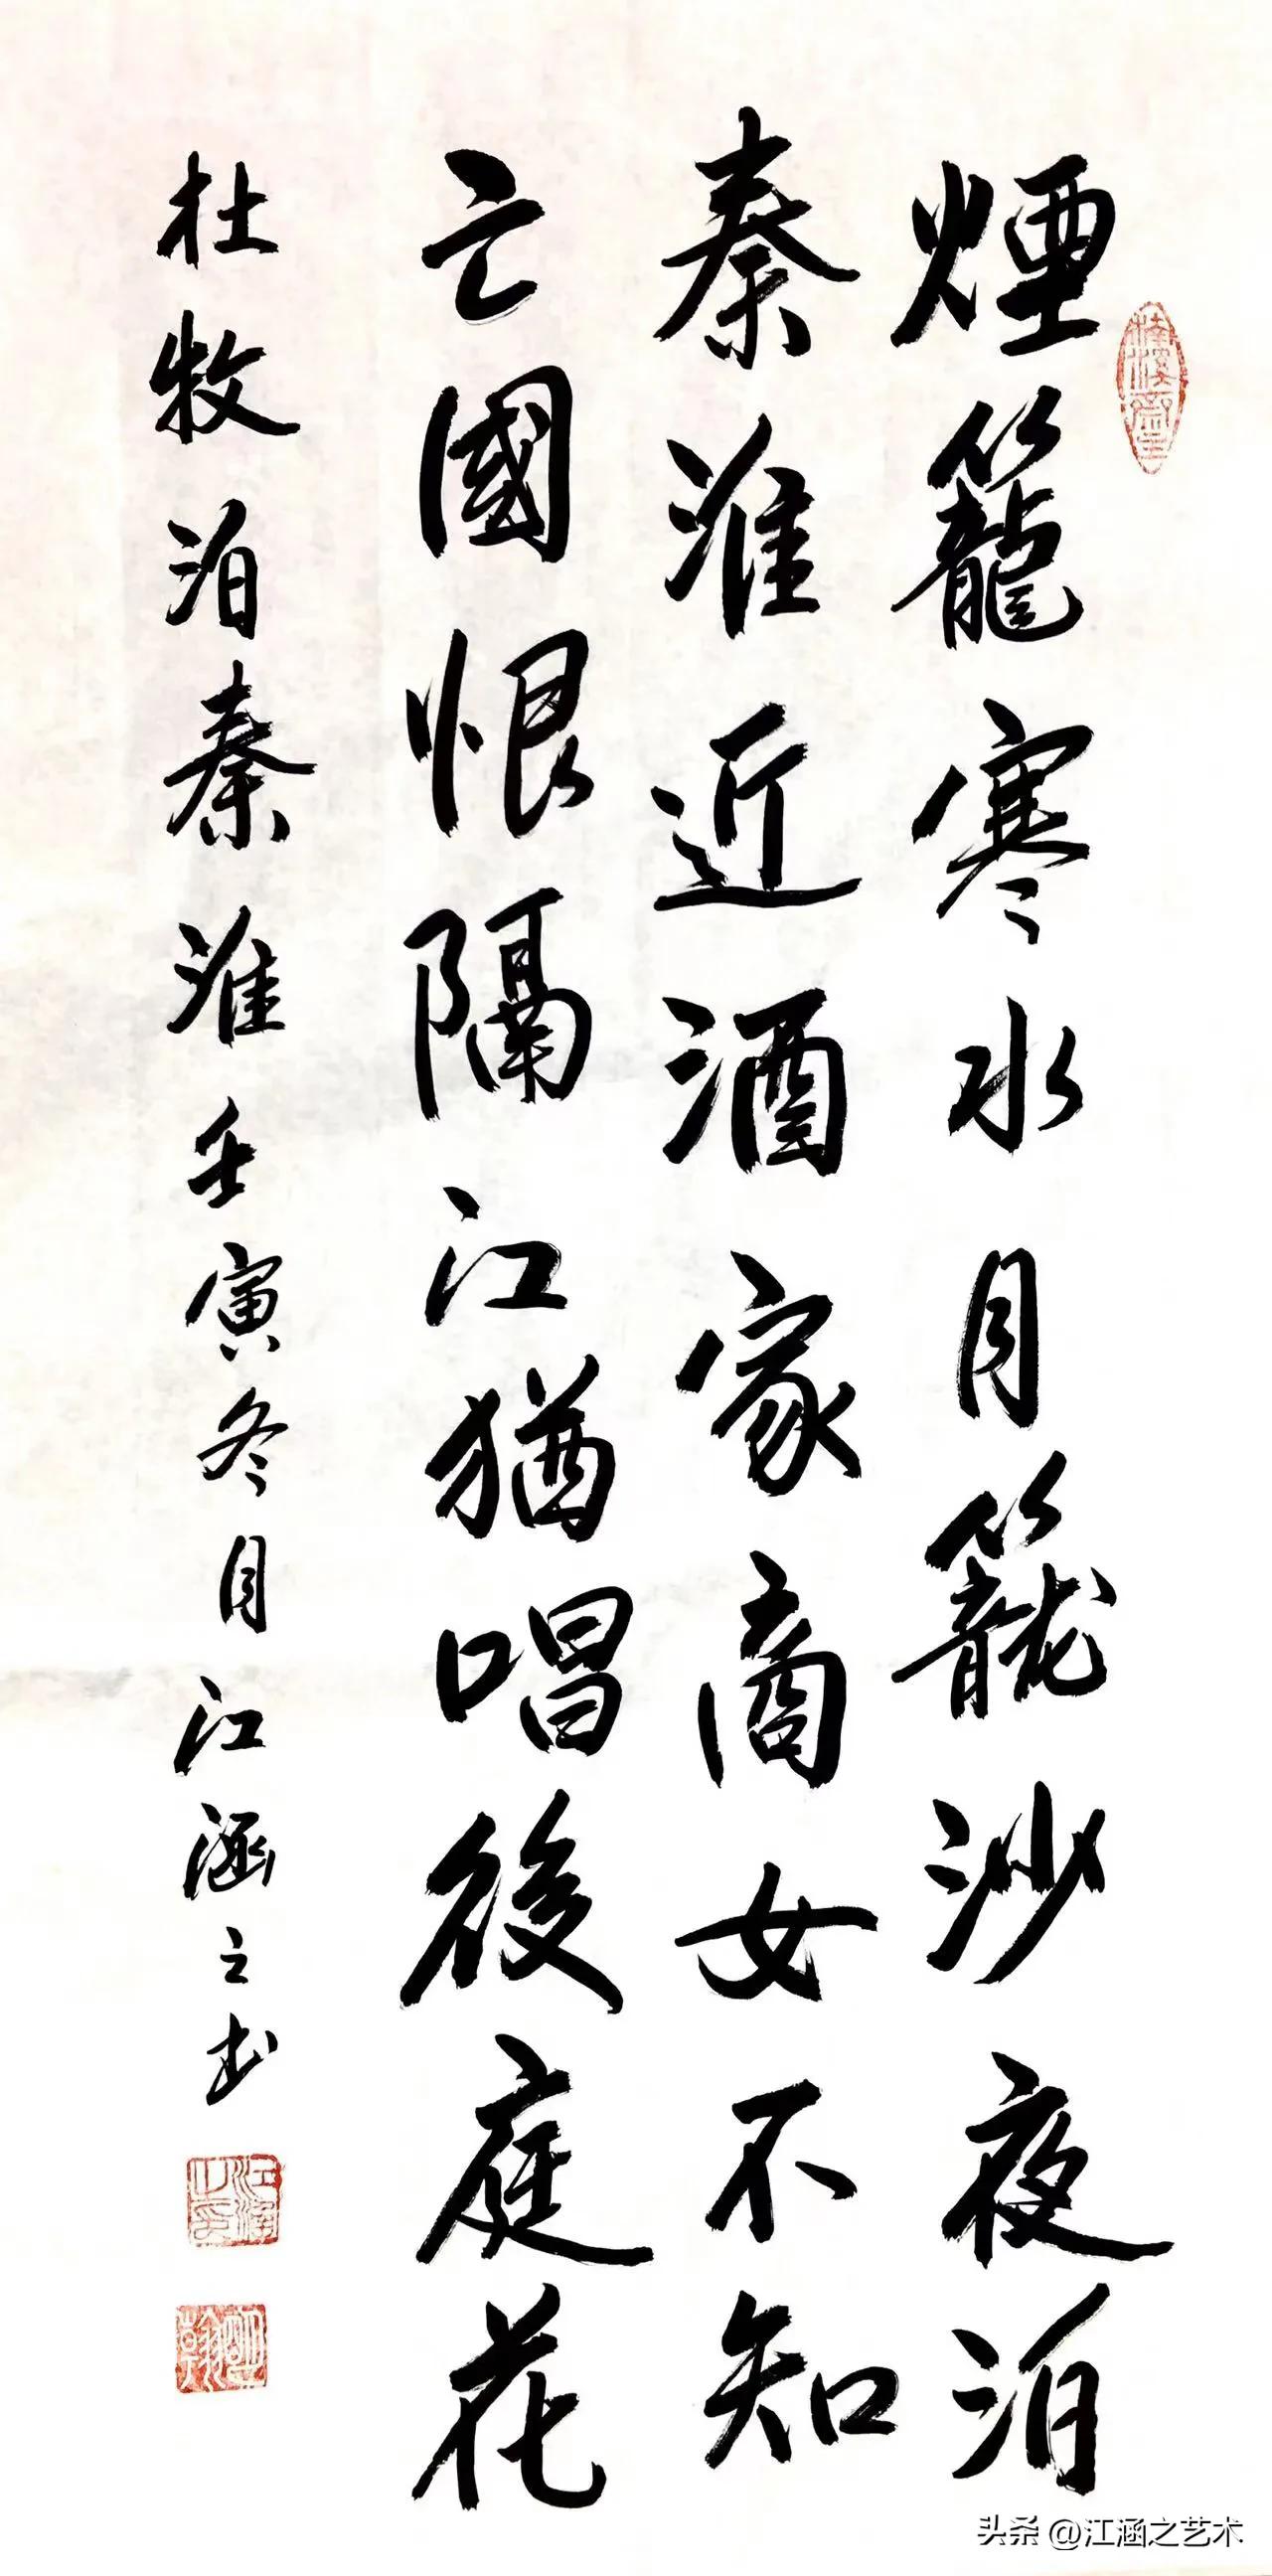 煙籠寒水月籠沙夜泊
秦淮近酒家商女不知
亡國恨隔江猶唱後庭花
杜牧泊秦淮壬寅冬月江涵之书
江涵之印
头条 @江涵之艺术